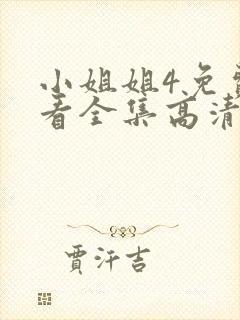 小姐姐4免费
看全集高清
贾汗吉